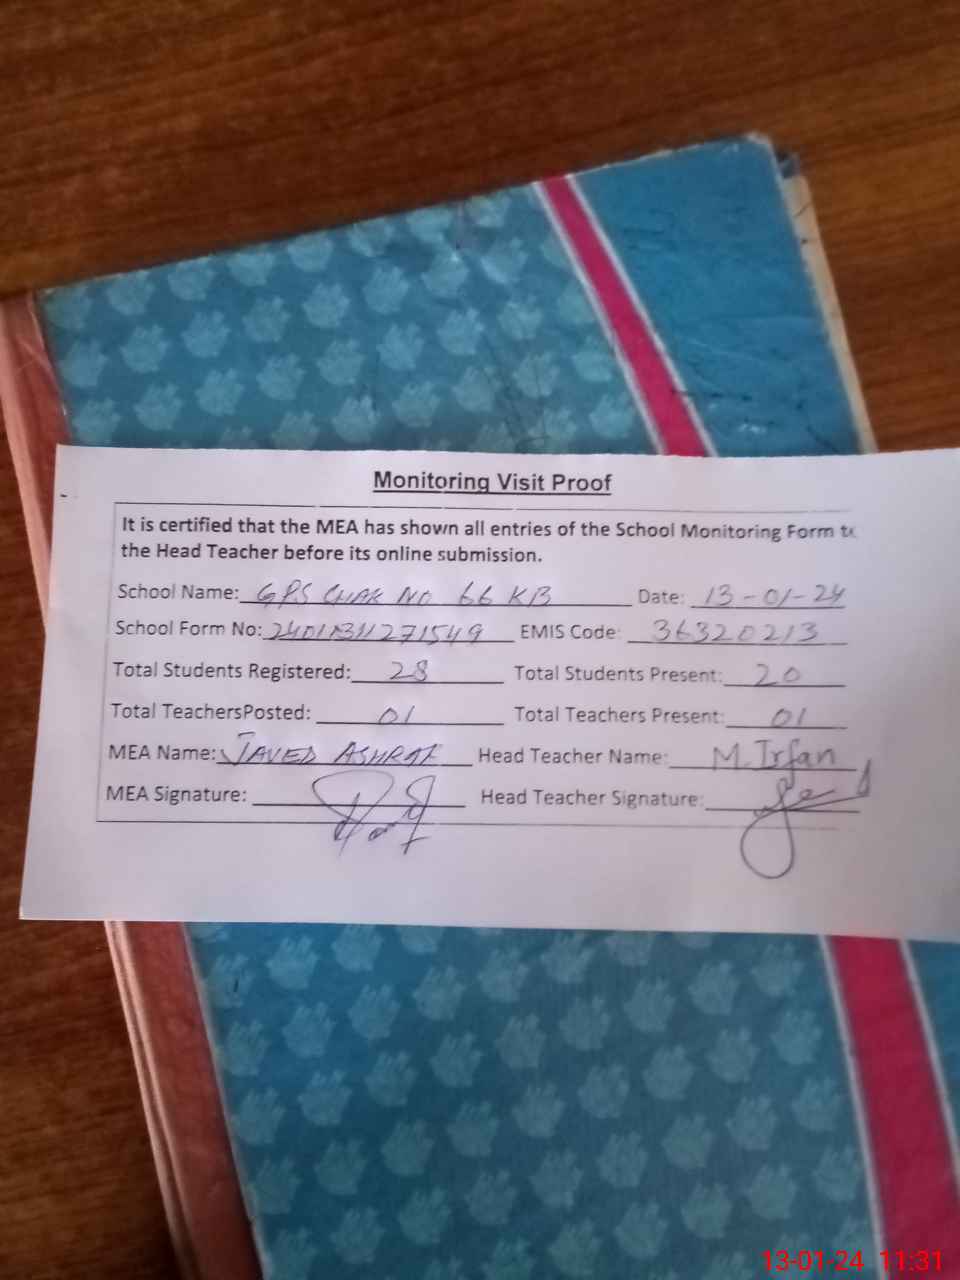 Monitoring Visit Proof
It is certified that the MEA has shown all entries of the School Monitoring Form to
the Head Teacher before its online submission.
School Name: GPS CHAK NO 66 KB Date: 13-01-24
School Form No: EMIS Code: 36320213
Total Students Registered: 28 Total Students Present: 20
Total TeachersPosted: 01 Total Teachers Present: 01
MEA Name: JAVED ASHRAF Head Teacher Name: M. Irfan
MEA Signature: Head Teacher Signature:
13-01-24 11:31